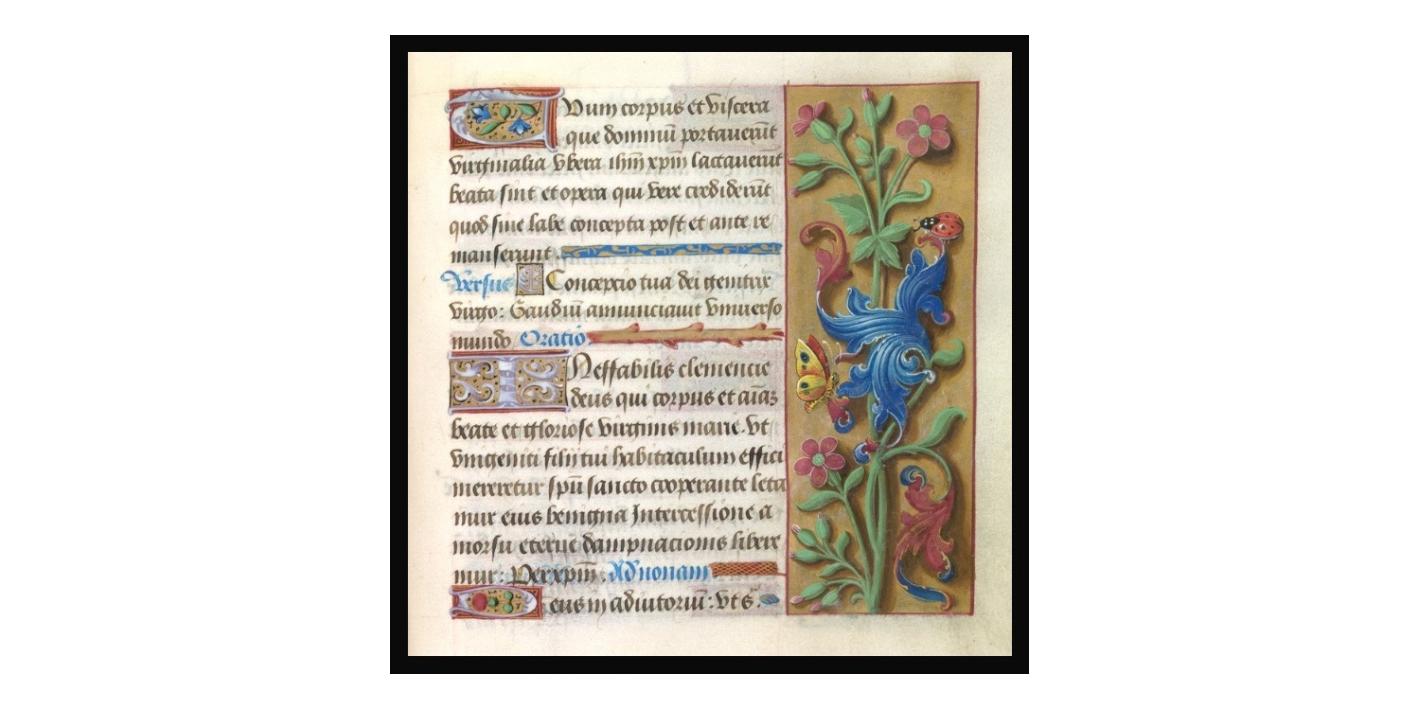 Dum corpus et viscera
que dominū portauerūt
virginalia vbera ihm̄ xpm̄ lactauerūt
beata sint et opera qui vere crediderūt
quod sine labe concepta post et ante re
manserunt
Versus Concepcio tua dei genitrix
virgo: Gaudiū annunciauit vniuerso
mundo Oratio
INeffabilis clemencie
deus qui corpus et aīaz
beate et gloriose virginis marie. vt
vnigeniti filij tui habitaculum effici
mereretur spū sancto cooperante leta
mur eius benigna Intercessione a
morsu eterne dampnacionis libere
mur: Per xpm̄. Ad nonam
Deus in adiutoriū: vt s̄.